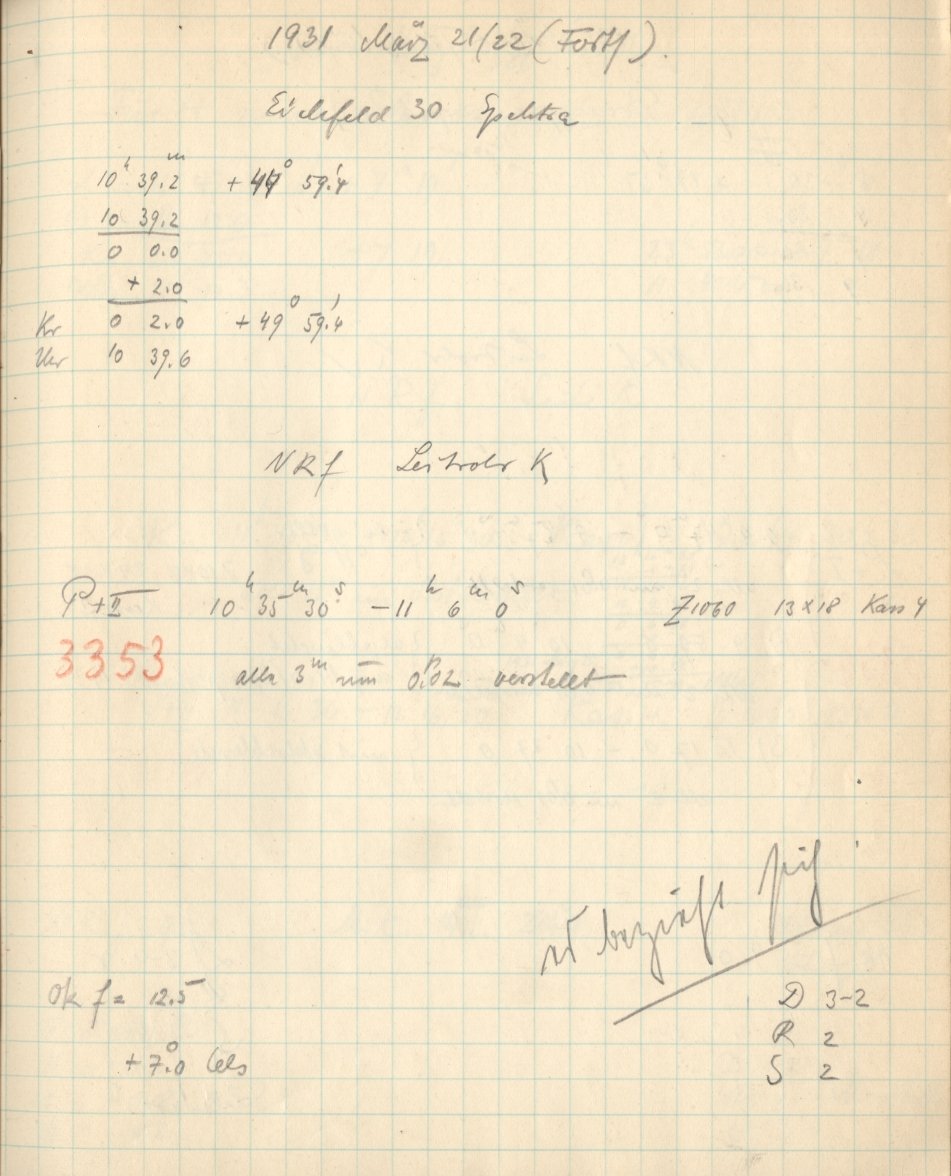 1931 März 21/22 (Forts).
Eichfeld 30 Spektra
10ʰ 39.2ᵐ +49° 59.'4
10 39.2
0 0.0
+ 2.0
Kr 0 2.0 +49° 59.'4
Uhr 10 39.6
NRf Leitrohr K
P+II 10ʰ 35ᵐ 30ˢ – 11ʰ 6ᵐ 0ˢ Z1060 13x18 Kass 4
3353
alle 3ᵐ um 0.02 verstellt
es bezieht sich
Ok f= 12.5
D 3-2
R 2
+7.°0 Cels
S 2